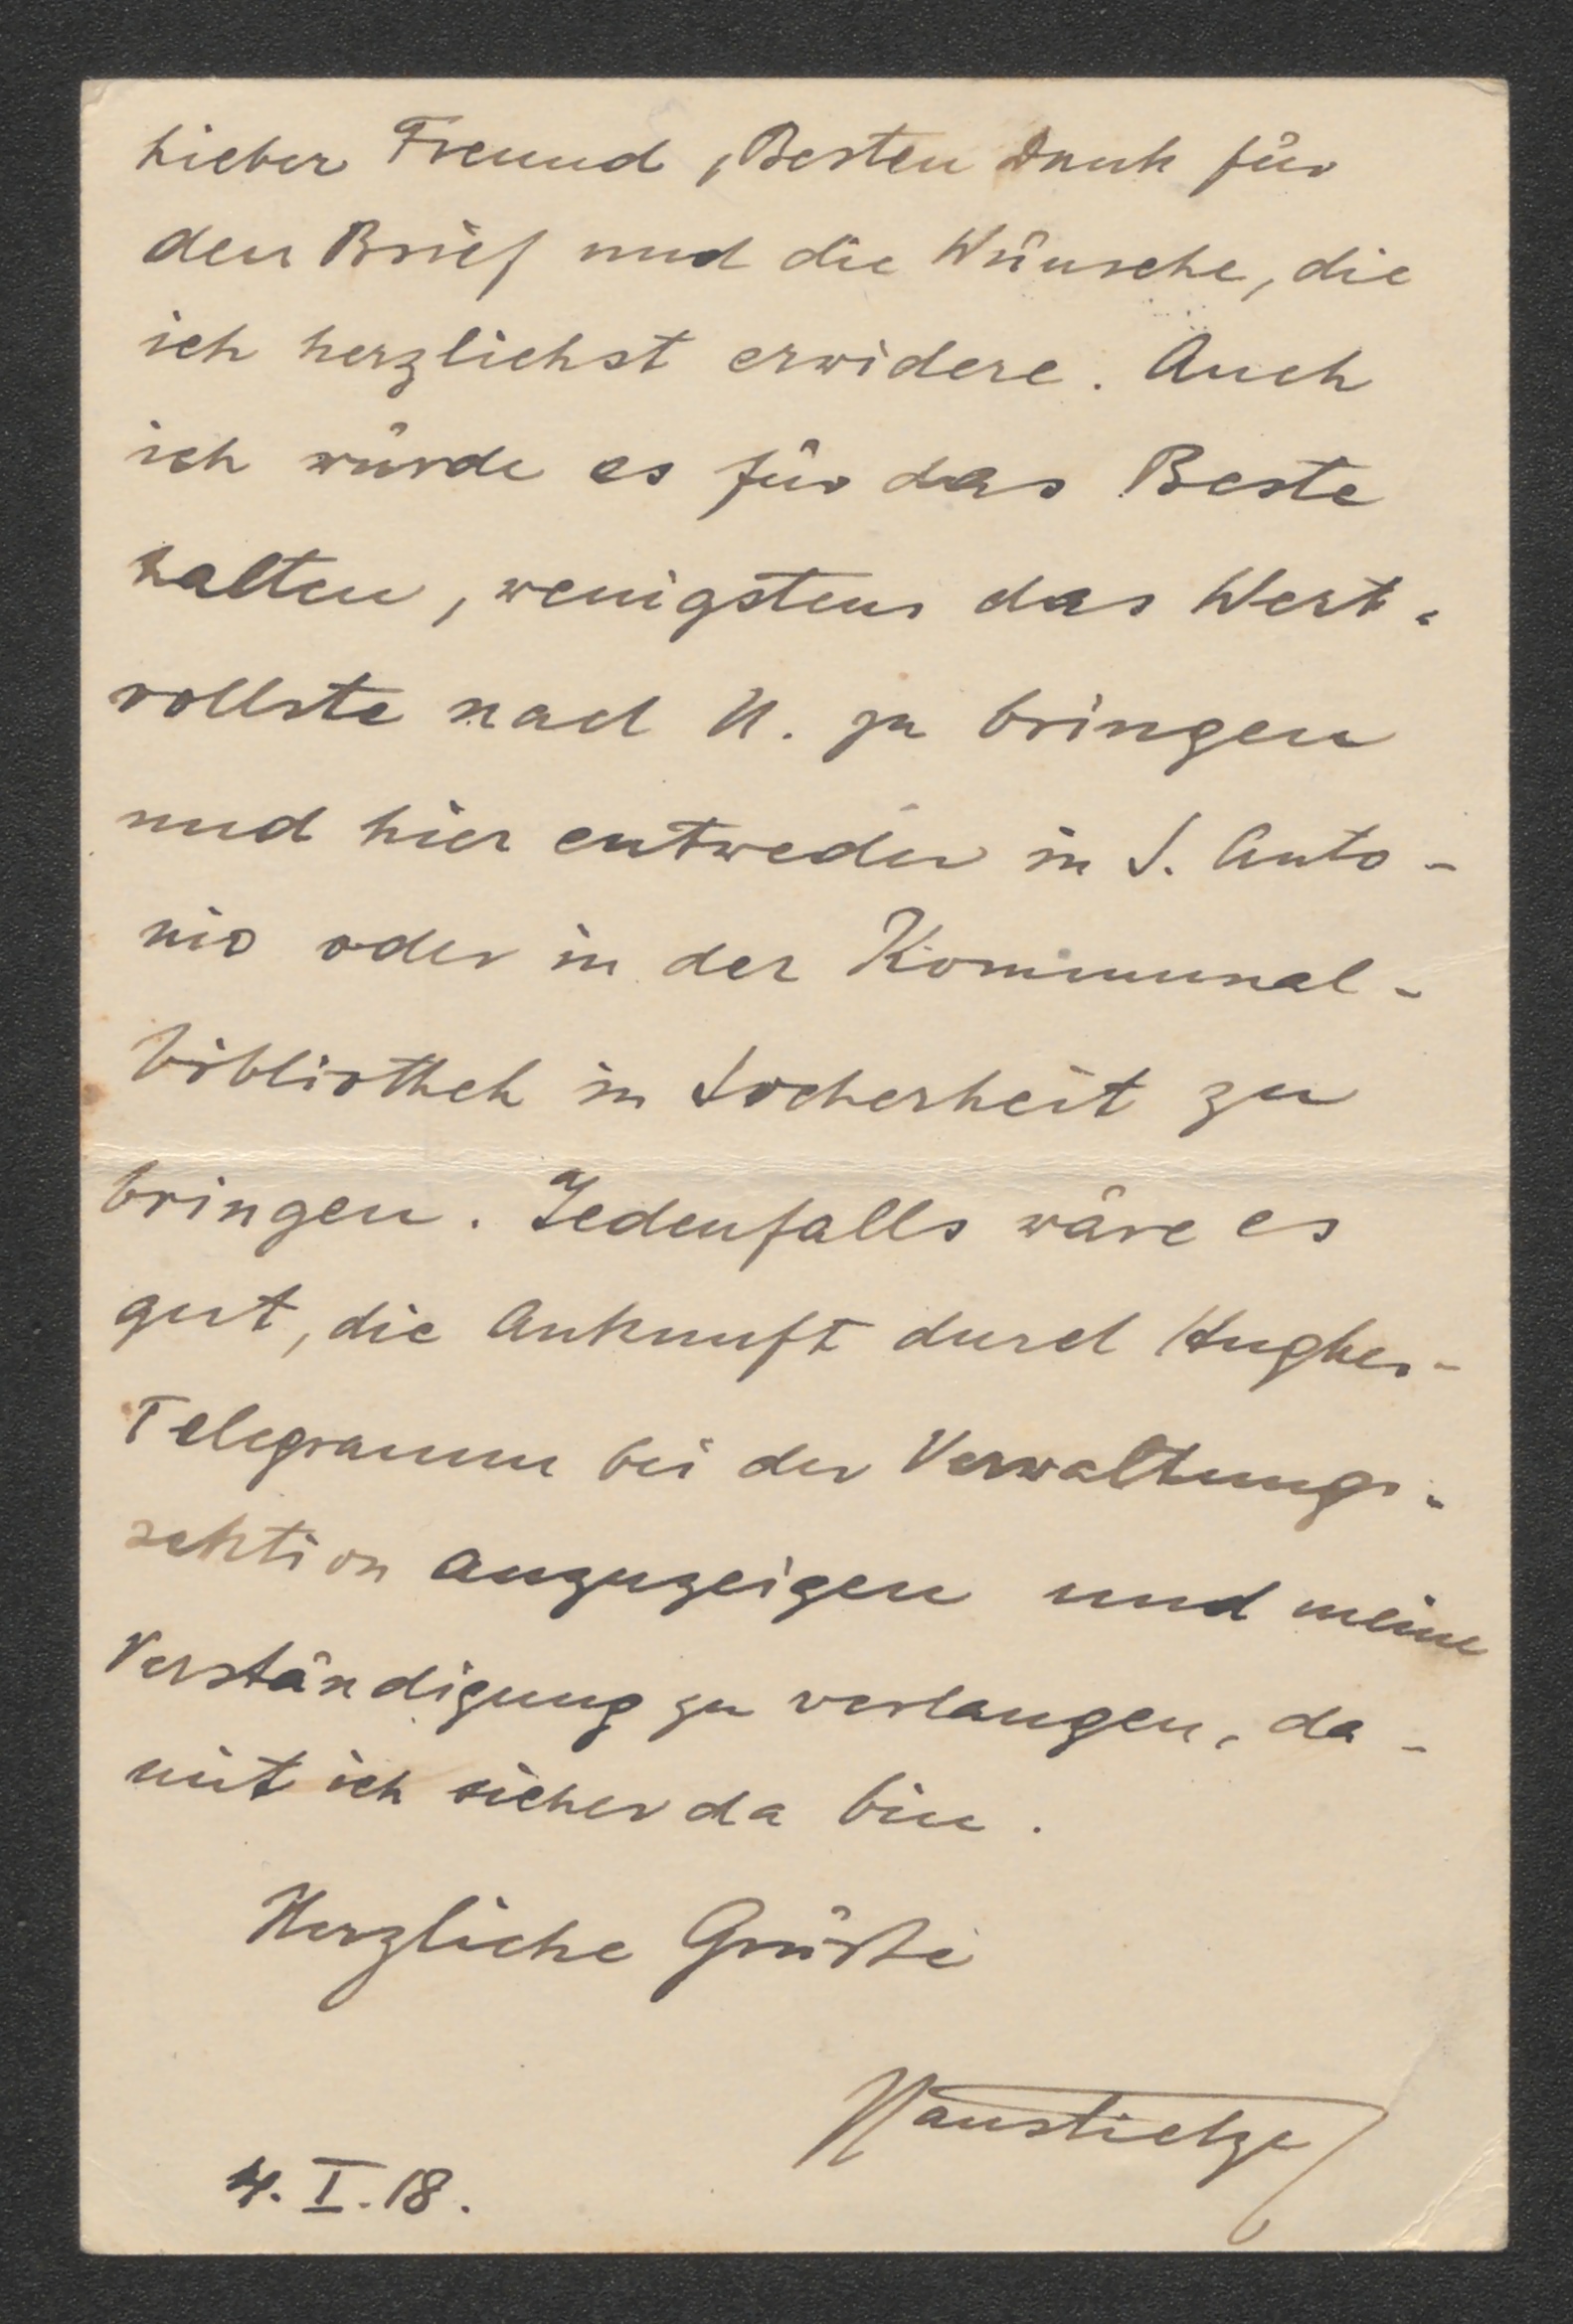 Lieber Freund, Besten Dank für
den Brief und die Wünsche, die
ich herzlichst erwidere. Auch
ich würde es für das Beste
halten, wenigstens das Wert-
vollste nach U. zu bringen
und hier entweder in S. Anto-
nio oder in der Kommunal-
bibliothek in Sicherheit zu
bringen. Jedenfalls wäre es
gut, die Ankunft durch Hughes-
Telegramm bei der Verwaltungs-
sektion anzuzeigen und meine
Verständigung zu verlangen, da-
mit ich sicher da bin.
Herzliche Grüße
Hanstietze
4. I. 18.